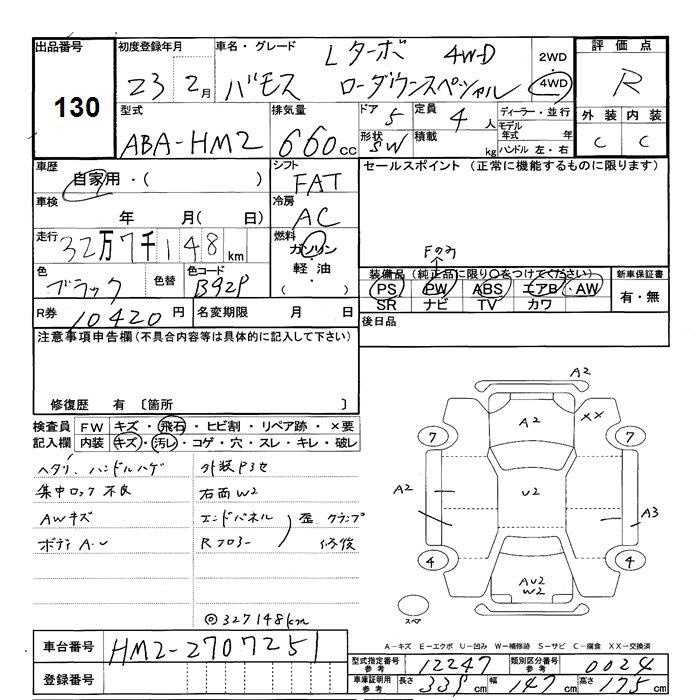 出品番号
130
初度登録年月
23 2月
車名・グレード
Lターボ 4WD
バモス ローダウンスペシャル
2WD
4WD
評価点
R
型式
ABA-HM2
排気量
660cc
ドア
5
形状
SW
定員
4人
積載
kg
ディーラー・並行
モデル年式 年
ハンドル 左・右
外装 内装
C C
車歴
自家用・( )
シフト
FAT
セールスポイント (正常に機能するものに限ります)
車検
年 月( 日)
冷房
AC
走行
32万7千148km
燃料
ガソリン
・
軽油
( )
色
ブラック
色替
色コード
B92P
Fのみ
装備品(純正品に限り○をつけてください)
PS PW ABS エアB・AW
SR ナビ TV カワ
新車保証書
有・無
R券 10420円
名変期限 月 日
後日品
注意事項申告欄(不具合内容等は具体的に記入して下さい)
修復歴 有 〔箇所 〕
検査員記入欄
FW キズ・飛石・ヒビ割・リペア跡・×要
内装 キズ・汚レ・コゲ・穴・スレ・キレ・破レ
ヘタリ、ハンドルハゲ
集中ロック不良
AWキズ
ボディA・U
外装Pヨセ
右面W2
エンドパネル
Rフロアー
歪、クランプ
修復
◎327148km
A2
A2
XX
7
7
A2
U2
A3
4
4
AU2
W2
スペア
A-キズ E-エクボ U-凹み W-補修跡 S-サビ C-腐食 XX-交換済
車台番号
HM2-2707251
登録番号
型式指定番号
参考
12247
類別区分番号
参考
0024
車庫証明用
参考
長さ 339cm
幅 147cm
高さ 175cm